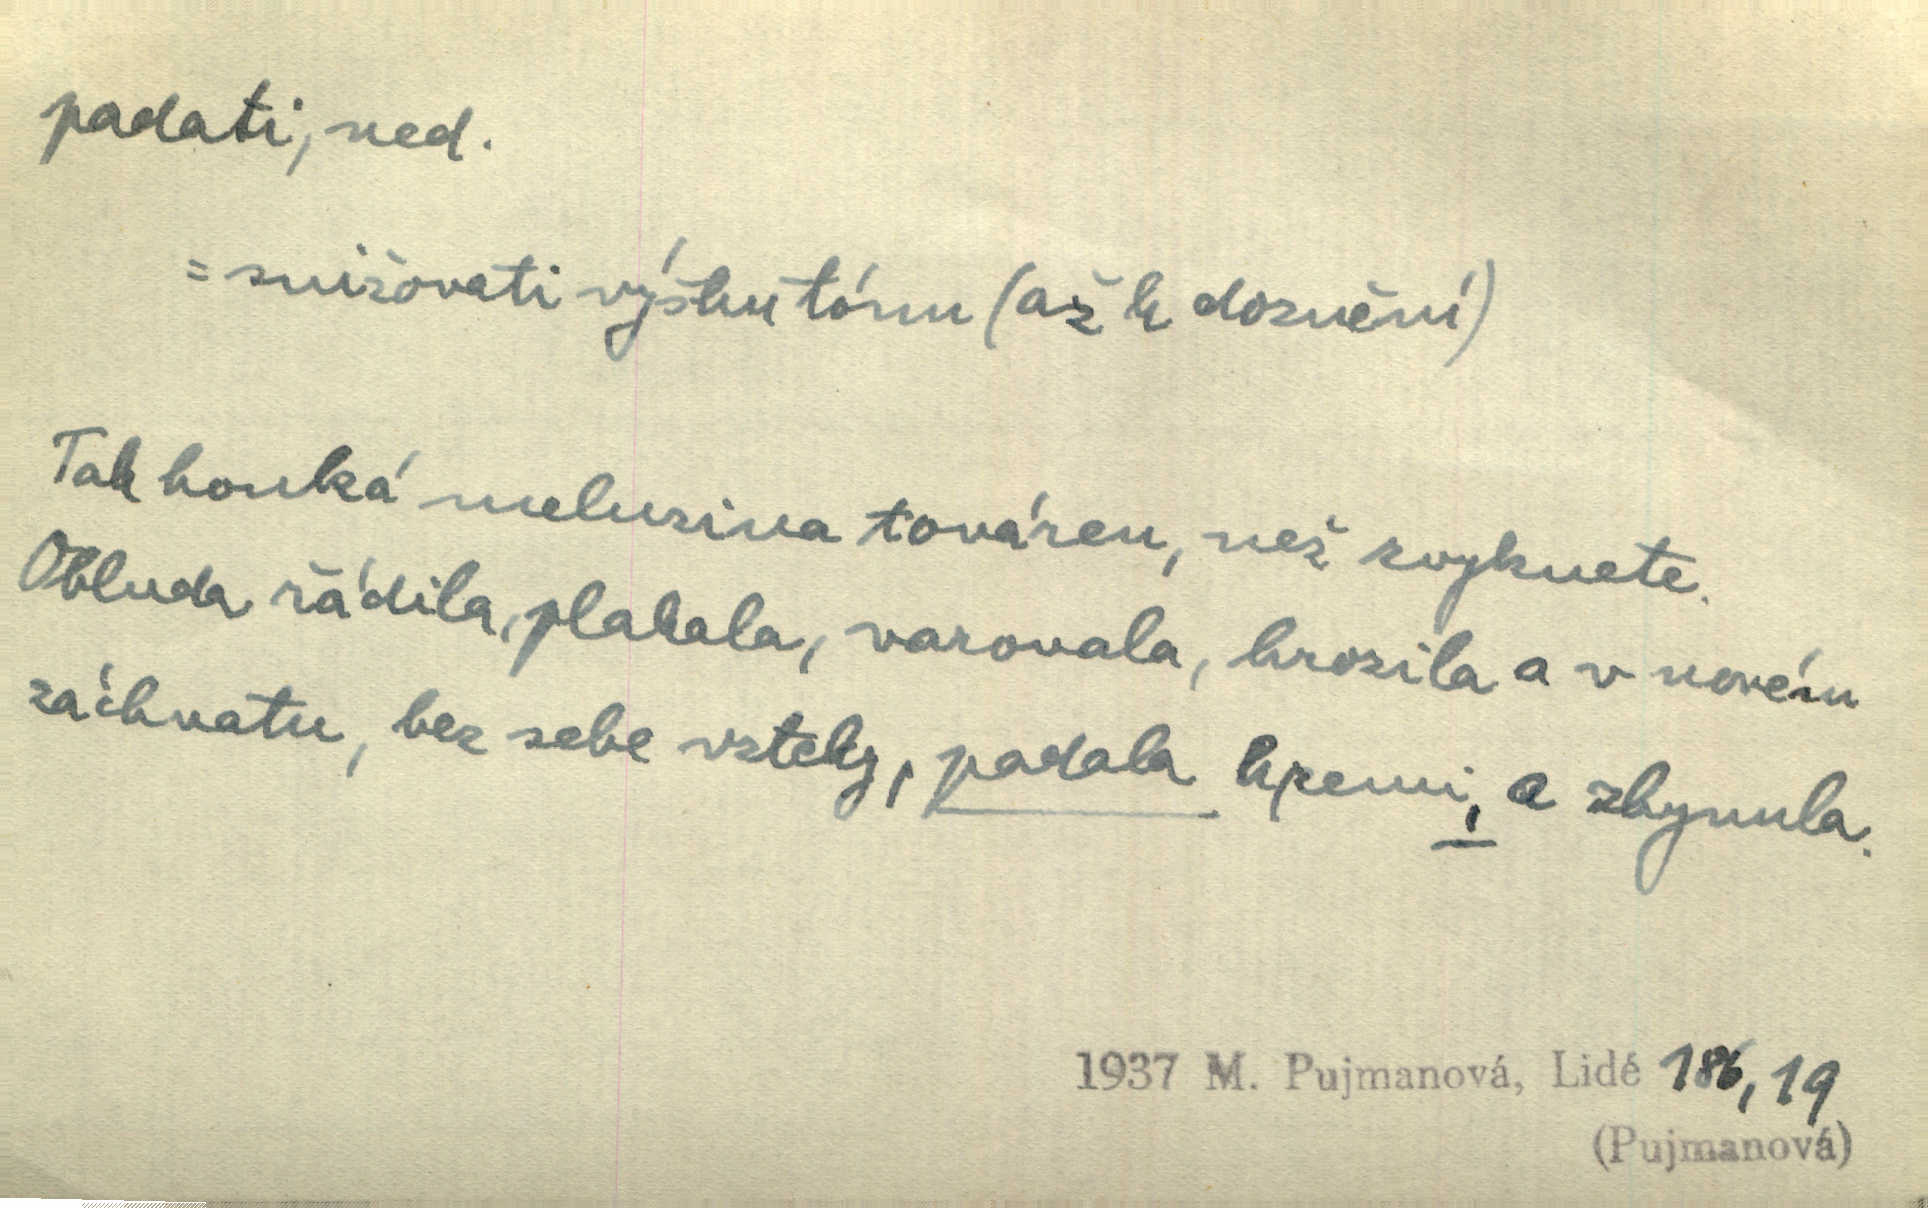 padati, ned.
= snižovati výšku tónu (až k doznění)
Tak houká meluzina továren, než zvyknete.
Obluda řádila, plakala, varovala, hrozila a v novém
záchvatu, bez sebe vzteky, padala kzemi, a zhynula.
1937 M. Pujmanová, Lidé 186, 19
(Pujmanová)